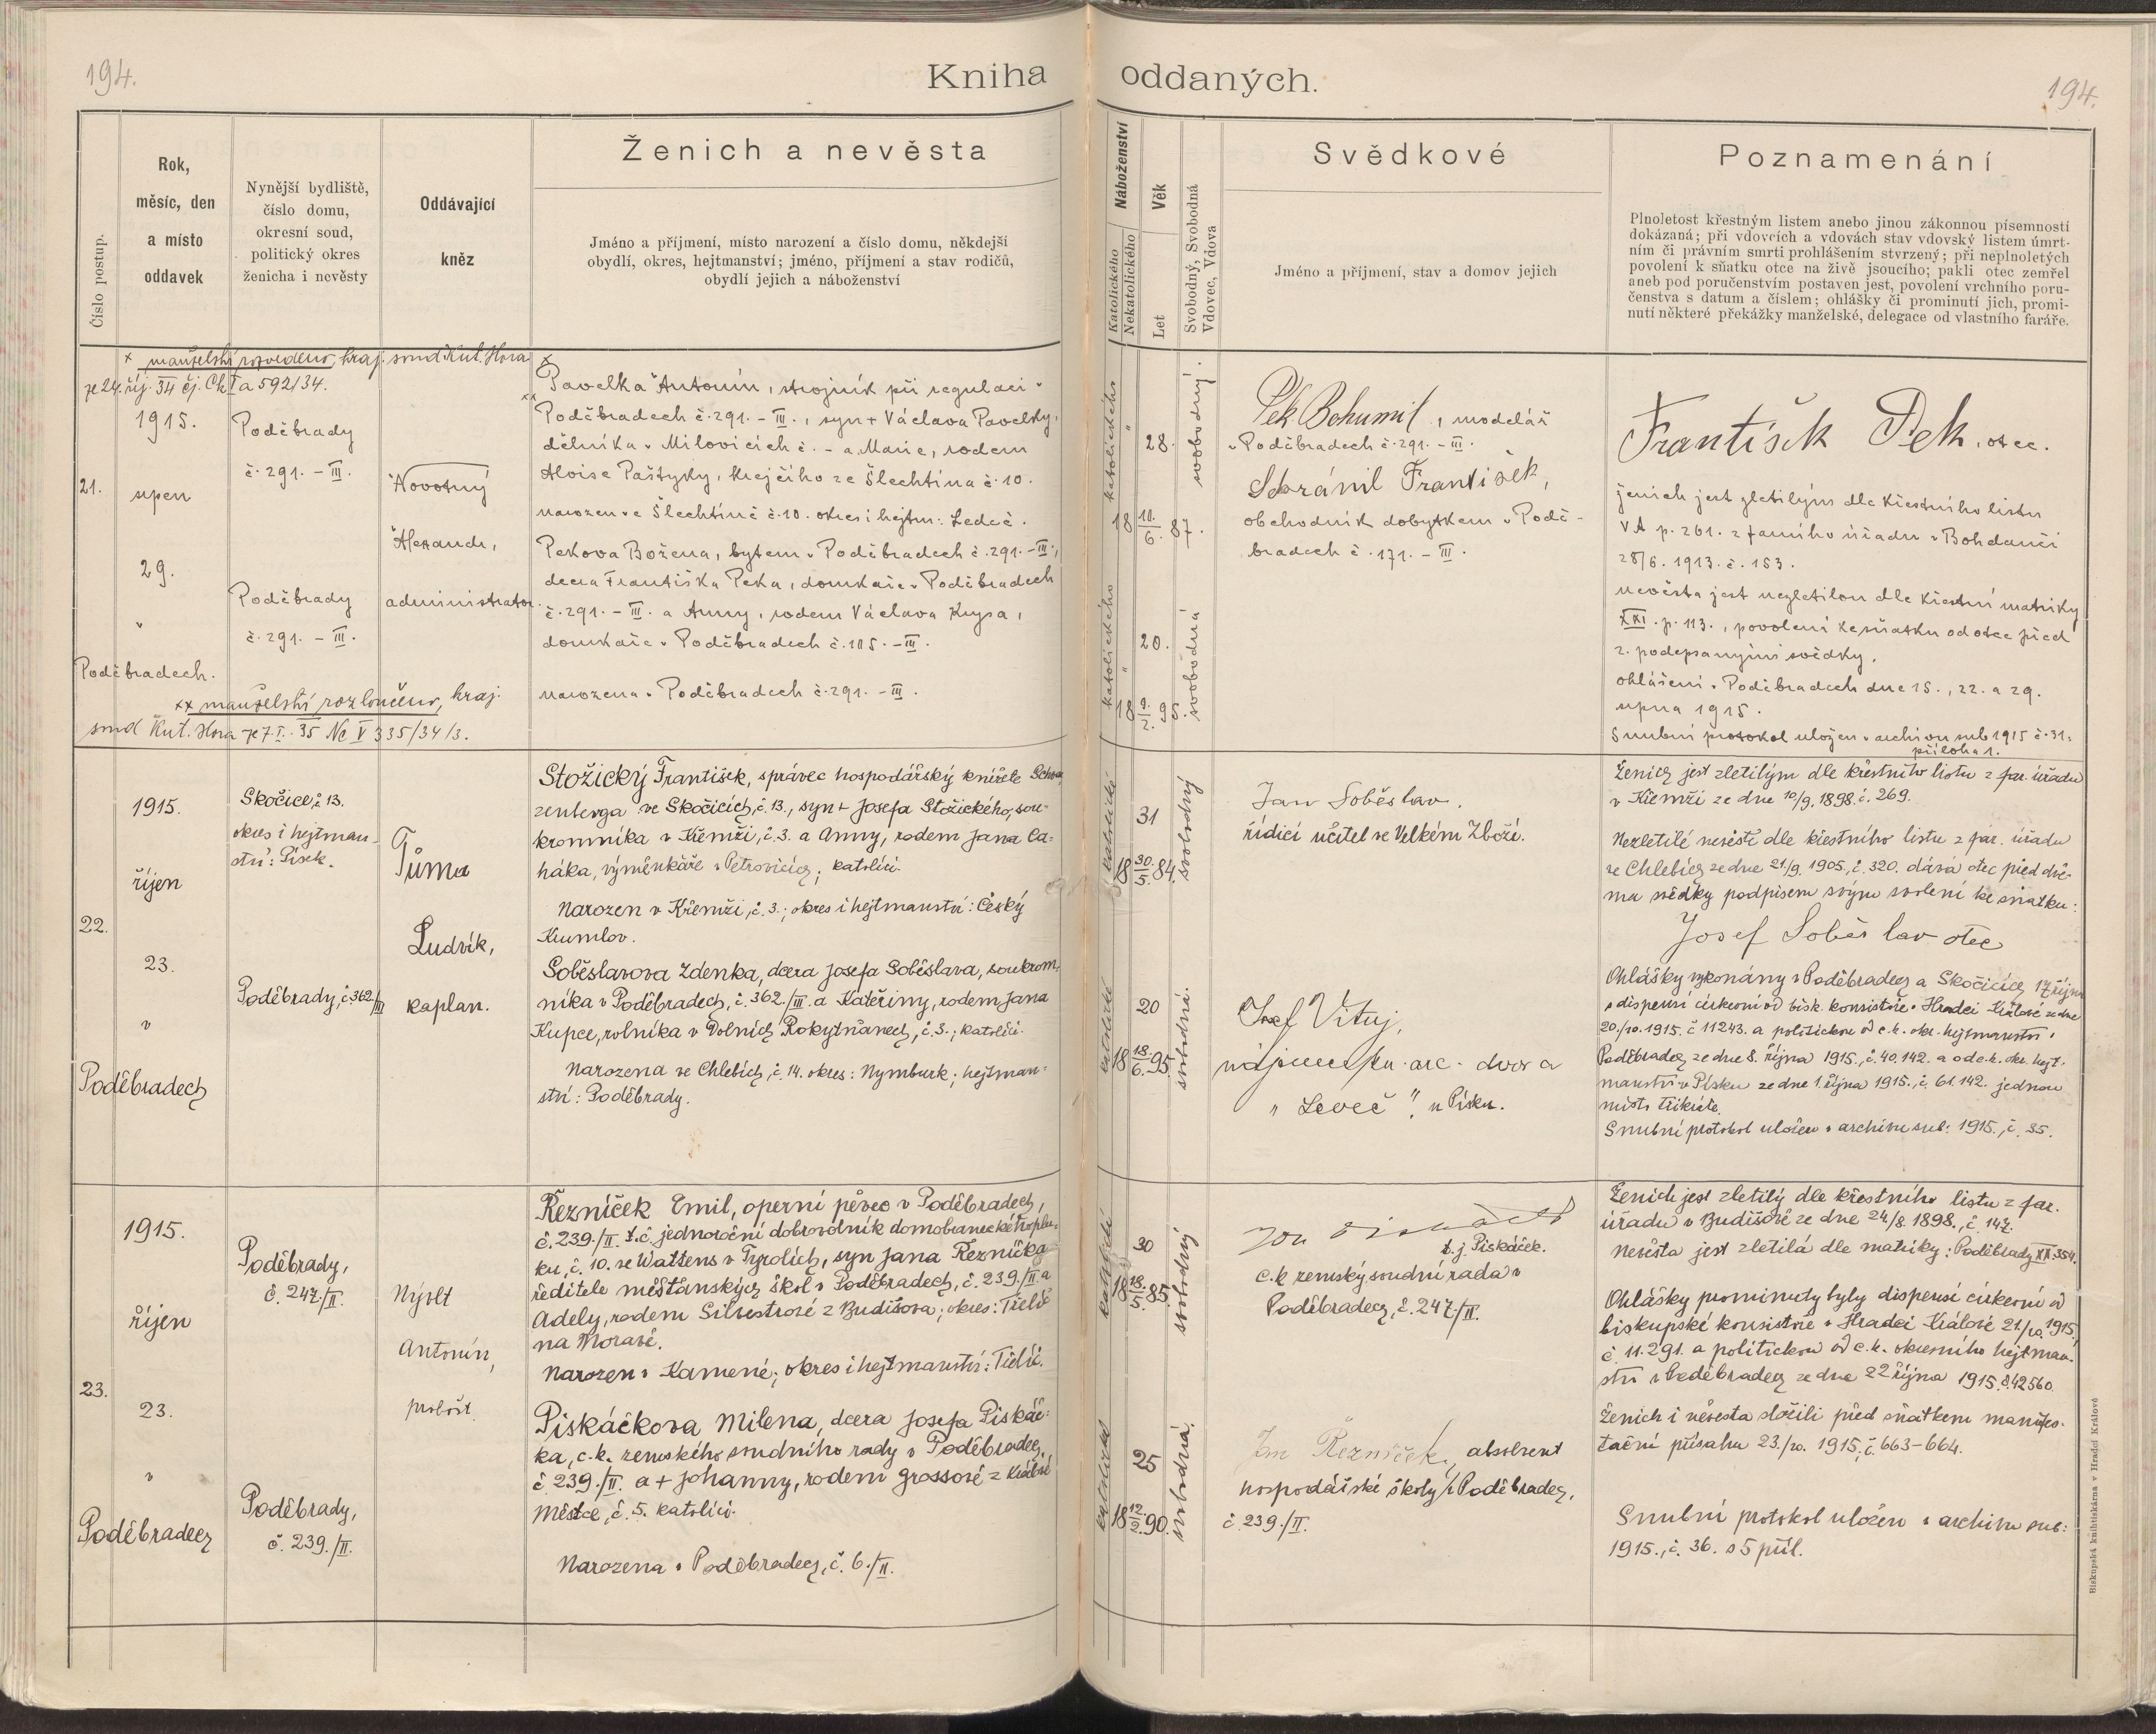 194.
Kniha oddaných.
194.
Číslo postup.
Rok,
měsíc, den
a místo
oddavek
Nynější bydliště,
číslo domu,
okresní soud,
politický okres
ženicha i nevěsty
Oddávající
kněz
Ženich a nevěsta
Jméno a příjmení, místo narození a číslo domu, někdejší
obydlí, okres, hejtmanství; jméno, příjmení a stav rodičů,
obydlí jejich a náboženství
Náboženství
Katolického
Nekatolického
Věk
Let
Svobodný, Svobodná
Vdovec, Vdova
Svědkové
Jméno a příjmení, stav a domov jejich
Poznamenání
Plnoletost křestným listem anebo jinou zákonnou písemností
dokázaná; při vdovcích a vdovách stav vdovský listem úmrt-
ním či právním smrti prohlášením stvrzený; při neplnoletých
povolení k sňatku otce na živě jsoucího; pakli otec zemřel
aneb pod poručenstvím postaven jest, povolení vrchního poru-
čenstva s datum a číslem; ohlášky či prominutí jich, promi-
nutí některé překážky manželské, delegace od vlastního faráře.
x manželství rozvedeno, kraj. soud Kut. Hora
ze 24. říj. 34 čj. Ck I a 592/34.
21.
1915.
srpen
29.
v
Poděbradech.
xx manželství rozloučeno, kraj.
soud Kut. Hora ze 7 I. 35 Nc V 335/34/3.
Poděbrady
č. 291. – III.
Poděbrady
č. 291. – III.
Novotný
Alexandr,
administrator.
x
Pavelka Antonín, strojník při regulaci v
xx
Poděbradech č. 291. – III., syn + Václava Pavelky,
dělníka v Milovicích č. – a Marie, rodem
Aloise Paštyky, krejčího ze Šlechtína č. 10.
narozen ve Šlechtíně č. 10. okres i hejtm: Ledeč.
Pekova Božena, bytem v Poděbradech č. 291. – III.,
dcera Františka Peka, domkaře v Poděbradech
č. 291. – III. a Anny, rodem Václava Krysa,
domkaře v Poděbradech č. 105. – III.
narozena v Poděbradech č. 291. – III.
katolického
"
28.
18 10./6. 87.
svobodný.
katolického
"
20.
18 9./2. 95.
svobodná
Pek Bohumil, modelář
v Poděbradech č. 291. – III.
Sebránil František,
obchodník dobytkem v Podě-
bradech č. 171. – III.
František Pek, otec.
ženich jest zletilým dle křestního listu
V A p. 261. z farního úřadu v Bohdanči
28/6. 1913. č. 153.
nevěsta jest nezletilou dle křestní matriky
XXI. p. 113., povolení ke sňatku od otce před
2. podepsanými svědky.
ohlášeni v Poděbradech dne 15., 22. a 29.
srpna 1915.
Snubní protokol uložen v archivu sub 1915 č. 31.
příloha 1.
22.
1915.
říjen
23.
v
Poděbradech
Skočice, č. 13.
okres i hejtman-
ství: Písek.
Poděbrady, č. 362/III
Tůma
Ludvík,
kaplan.
Stožický František, správec hospodářský knížete Schwar-
zenberga ve Skočicích, č. 13., syn + Josefa Stožického, sou-
kromníka v Křemži, č. 3. a Anny, rodem Jana Ca-
háka, výměnkáře v Petrovicích; katolíci.
Narozen v Křemži, č. 3.; okres i hejtmanství: Český
Krumlov.
Soběslavova Zdenka, dcera Josefa Soběslava, soukrom-
níka v Poděbradech, č. 362./III. a Kateřiny, rodem Jana
Kupce, rolníka v Dolních Rokytňanech, č. 3.; katolíci.
Narozena ve Chlebích, č. 14. okres: Nymburk; hejtman-
ství: Poděbrady.
katolické
31
18 30./5. 84.
svobodný
katolické
20
18 18./6. 95.
svobodná.
Jan Soběslav.
řídící učitel ve Velkém Zboží.
Josef Vituj,
nájemce kn. arc. dvora
„Leveč“, u Písku.
Ženich jest zletilým dle křestního listu z far. úřadu
v Křemži ze dne 10/9. 1898. č. 269.
Nezletilé nevěstě dle křestního listu z far. úřadu
ve Chlebích ze dne 21/9. 1905., č. 320. dává otec před dvě-
ma svědky podpisem svým svolení ke sňatku:
Josef Soběslav otec
Ohlášky vykonány v Poděbradech a Skočicích 17 října
s dispensí církevní od bisk. konsistoře v Hradci Králové ze dne
20./10. 1915. č 11243. a politickou od c. k. okr. hejtmanství v
Poděbradech ze dne 8. října 1915., č. 40.142. a od c. k. okr. hejt-
manství v Písku ze dne 1. října 1915., č. 61.142. jednou
místo třikráte.
Snubní protokol uložen v archivu sub: 1915., č. 35.
23.
1915.
říjen
23.
v
Poděbradech
Poděbrady,
č. 247/II.
Poděbrady,
č. 239./II.
Nývlt
Antonín,
probošt.
Řezníček Emil, operní pěvec v Poděbradech,
č. 239./II. t. č. jednoroční dobrovolník domobraneckého pluku
ku, č. 10. ve Wattens v Tyrolích, syn Jana Řezníčka
ředitele měšťanských škol v Poděbradech, č. 239./II. a
Adely, rodem Silvestrové z Budišova; okres: Třebíč
na Moravě.
Narozen v Kamené; okres i hejtmanství: Třebíč.
Piskáčkova Milena, dcera Josefa Piskáč-
ka, c. k. zemského soudního rady v Poděbradech,
č. 239./II. a + Johanny, rodem Grossové z Králové
Městce, č. 5. katolíci.
Narozena v Poděbradech, č. 6./II.
katolické
30
18 18./5. 85.
svobodný
katolické
25
18 12./2. 90.
svobodná.
t. j. Piskáček.
c. k. zemský soudní rada v
Poděbradech, č. 247./II.
Jan Řezníček, absolvent
hospodářské školy v Poděbradech,
č. 239./II.
Ženich jest zletilý dle křestního listu z far.
úřadu v Budišově ze dne 24./8. 1898., č. 147.
Nevěsta jest zletilá dle matriky: Poděbrady XX. 354.
Ohlášky prominuty byly dispensí církevní od
biskupské konsistoře v Hradci Králové 21/10. 1915.,
č. 11.291. a politickou od c. k. okresního hejtman-
ství v Poděbradech ze dne 22 října 1915. č. 42560.
Ženich i nevěsta složili před sňatkem manifes-
tační přísahu 23./10. 1915. č. 663–664.
Snubní protokol uložen v archivu sub:
1915., č. 36. s 5 příl.
Biskupská knihtiskárna v Hradci Králové